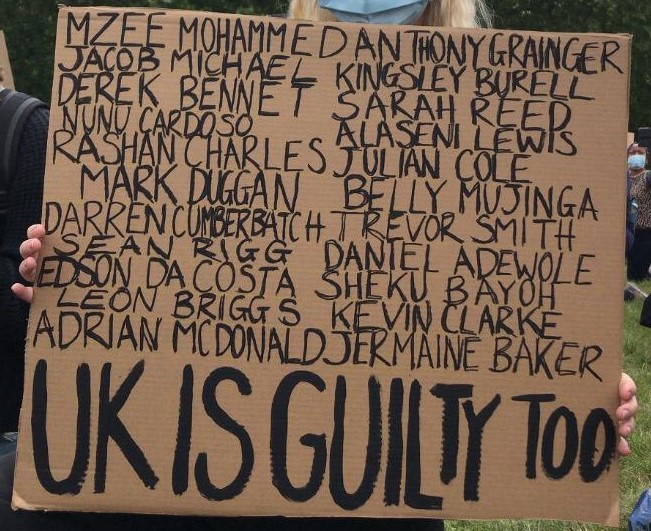 MZEE MOHAMMED ANTHONY GRAINGER
JACOB MICHAEL KINGSLEY BURELL
DEREK BENNET SARAH REED
NUNU CARDOSO ALASENI LEWIS
RASHAN CHARLES JULIAN COLE
MARK DUGGAN BELLY MUJINGA
DARREN CUMBERBATCH TREVOR SMITH
SEAN RIGG DANIEL ADEWOLE
EDSON DA COSTA SHEKU BAYOH
LEON BRIGGS KEVIN CLARKE
ADRIAN MCDONALD JERMAINE BAKER
UK IS GUILTY TOO